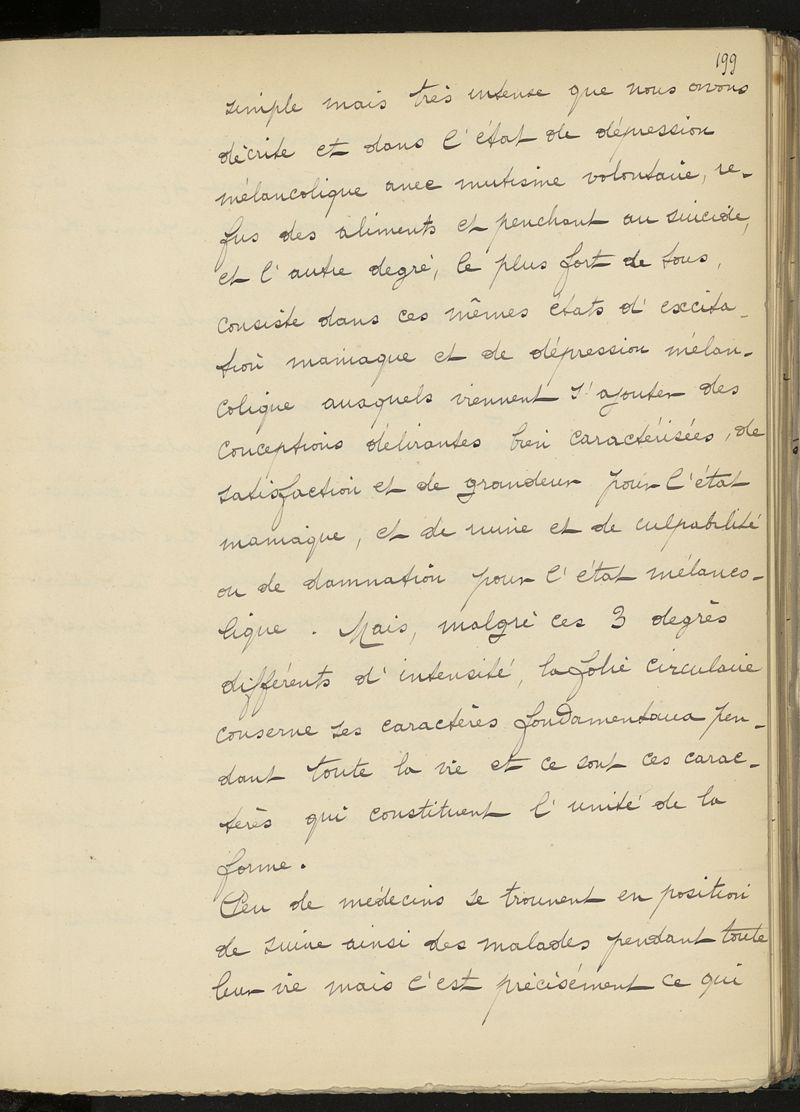 199
simple mais très intense que nous avons
décrite et dans l'état de dépression
mélancolique avec mutisme volontaire, re-
fus des aliments et penchant au suicide,
et l'autre degré, le plus fort de tous,
consiste dans ces mêmes états d'excita-
tion maniaque et de dépression mélan-
colique auxquels viennent s'ajouter des
conceptions délirantes bien caractérisées, de
satisfaction et de grandeur pour l'état
maniaque, et de ruine et de culpabilité
ou de damnation pour l'état mélanco-
lique. Mais, malgré ces 3 degrés
différents d'intensité, la folie circulaire
conserve ses caractères fondamentaux pen-
dant toute la vie et ce sont ces carac-
tères qui constituent l'unité de la
forme.
Peu de médecins se trouvent en position
de suivre ainsi des malades pendant toute
leur vie mais c'est précisément ce qui